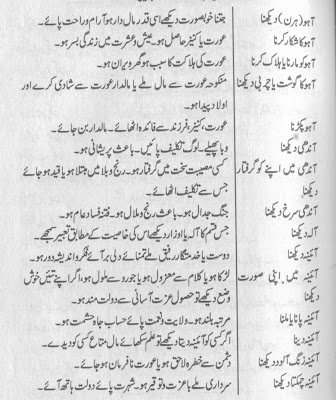 آہو (ہرن) دیکھنا جتنا خوبصورت دیکھے اسی قدر مال دار ہو آرام و راحت پائے۔
آہو کا شکار کرنا عورت یا کنیز حاصل ہو۔ عیش و عشرت میں زندگی بسر ہو۔
آہو کو مارنا یا ہلاک کرنا عورت کی ہلاکت کا سبب ہو گھر ویران ہو۔
آہو کا گوشت یا چربی دیکھنا منکوحہ عورت سے مال ملے یا مالدار عورت سے شادی کرے اور
اولاد پیدا ہو۔
آہو پکڑنا عورت، کنیز، فرزند سے فائدہ اٹھائے۔ مالدار بن جائے۔
آندھی دیکھنا وبا پھیلے۔ لوگ تکلیف پائیں۔ باعث پریشانی ہو۔
آندھی میں اپنے کو گرفتار کسی مصیبت سخت میں گرفتار ہو۔ رنج و بلا میں مبتلا ہو یا قید ہو جائے
دیکھنا جس سے تکلیف اٹھائے۔
آندھی سرخ دیکھنا جنگ جدال ہو۔ باعث رنج و ملال ہو۔ فتنہ فساد عام ہو۔
آلہ دیکھنا جس قسم کا آلہ یا اوزار دیکھے اس کی خاصیت کے مطابق تعبیر سمجھے۔
آئینہ دیکھنا دوست یا خدمتگار رفیق ملے تمنائے دلی بر آئے فکر و اندیشہ دور ہو۔
آئینہ میں اپنی صورت لڑکا ہو یا کام سے معزول ہو یا جورو سے ملول ہو، اگر اپنے تئیں خوش
دیکھنا وضع دیکھے تو حصول عزت آسانی سے دولت مند ہو۔
آئینہ پانا یا ملنا مرتبہ بلند ہو۔ ولایت و نعمت پائے حساب جاہ حشمت ہو۔
آئینہ دینا اگر کسی کو آئینہ دینا دیکھے تو علم سکھائے مال متاع کسی کو دیدے۔
آئینہ زنگ آلود دیکھنا دشمن سے خطرہ لاحق ہو یا عورت نافرمان ہو جائے۔
آئینہ چمکتا دیکھنا سرداری ملے با عزت و توقیر ہو۔ شہرت پائے دولت ہاتھ آئے۔